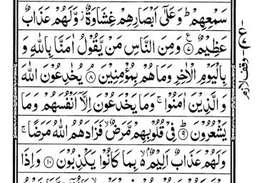 سَمْعِهِمْ ؕ وَعَلٰۤی اَبْصَارِهِمْ غِشَاوَةٌ ؗ وَّلَهُمْ عَذَابٌ
عَظِیْمٌ ۷ وَمِنَ النَّاسِ مَنْ یَّقُوْلُ اٰمَنَّا بِاللّٰهِ وَ
بِالْیَوْمِ الْاٰخِرِ وَمَا هُمْ بِمُؤْمِنِیْنَ ۘ ۸ یُخٰدِعُوْنَ اللّٰهَ
وَالَّذِیْنَ اٰمَنُوْا ۚ وَمَا یَخْدَعُوْنَ اِلَّاۤ اَنْفُسَهُمْ وَمَا
یَشْعُرُوْنَ ؕ ۹ فِیْ قُلُوْبِهِمْ مَّرَضٌ ۙ فَزَادَهُمُ اللّٰهُ مَرَضًا ۚ
وَلَهُمْ عَذَابٌ اَلِیْمٌۢ ۙ۬ بِمَا كَانُوْا یَكْذِبُوْنَ ۱۰ وَاِذَا
وقف لازم